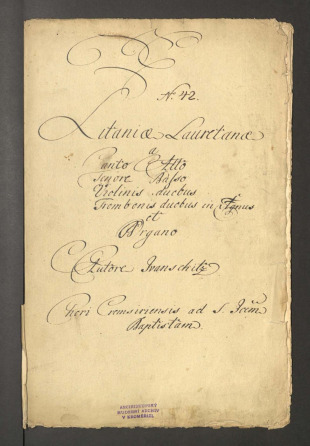 No. 42.
Litaniæ Lauretanæ
a
Canto Alto
Tenore Basso
Violinis duobus
Trombonis duobus in Agnus
et
Organo
Autore Ivanschitz
Chori Cremsiriensis ad S. Joem
Baptistam
ARCIBISKUPSKÝ
HUDEBNÍ ARCHIV
V KROMĚŘÍŽI